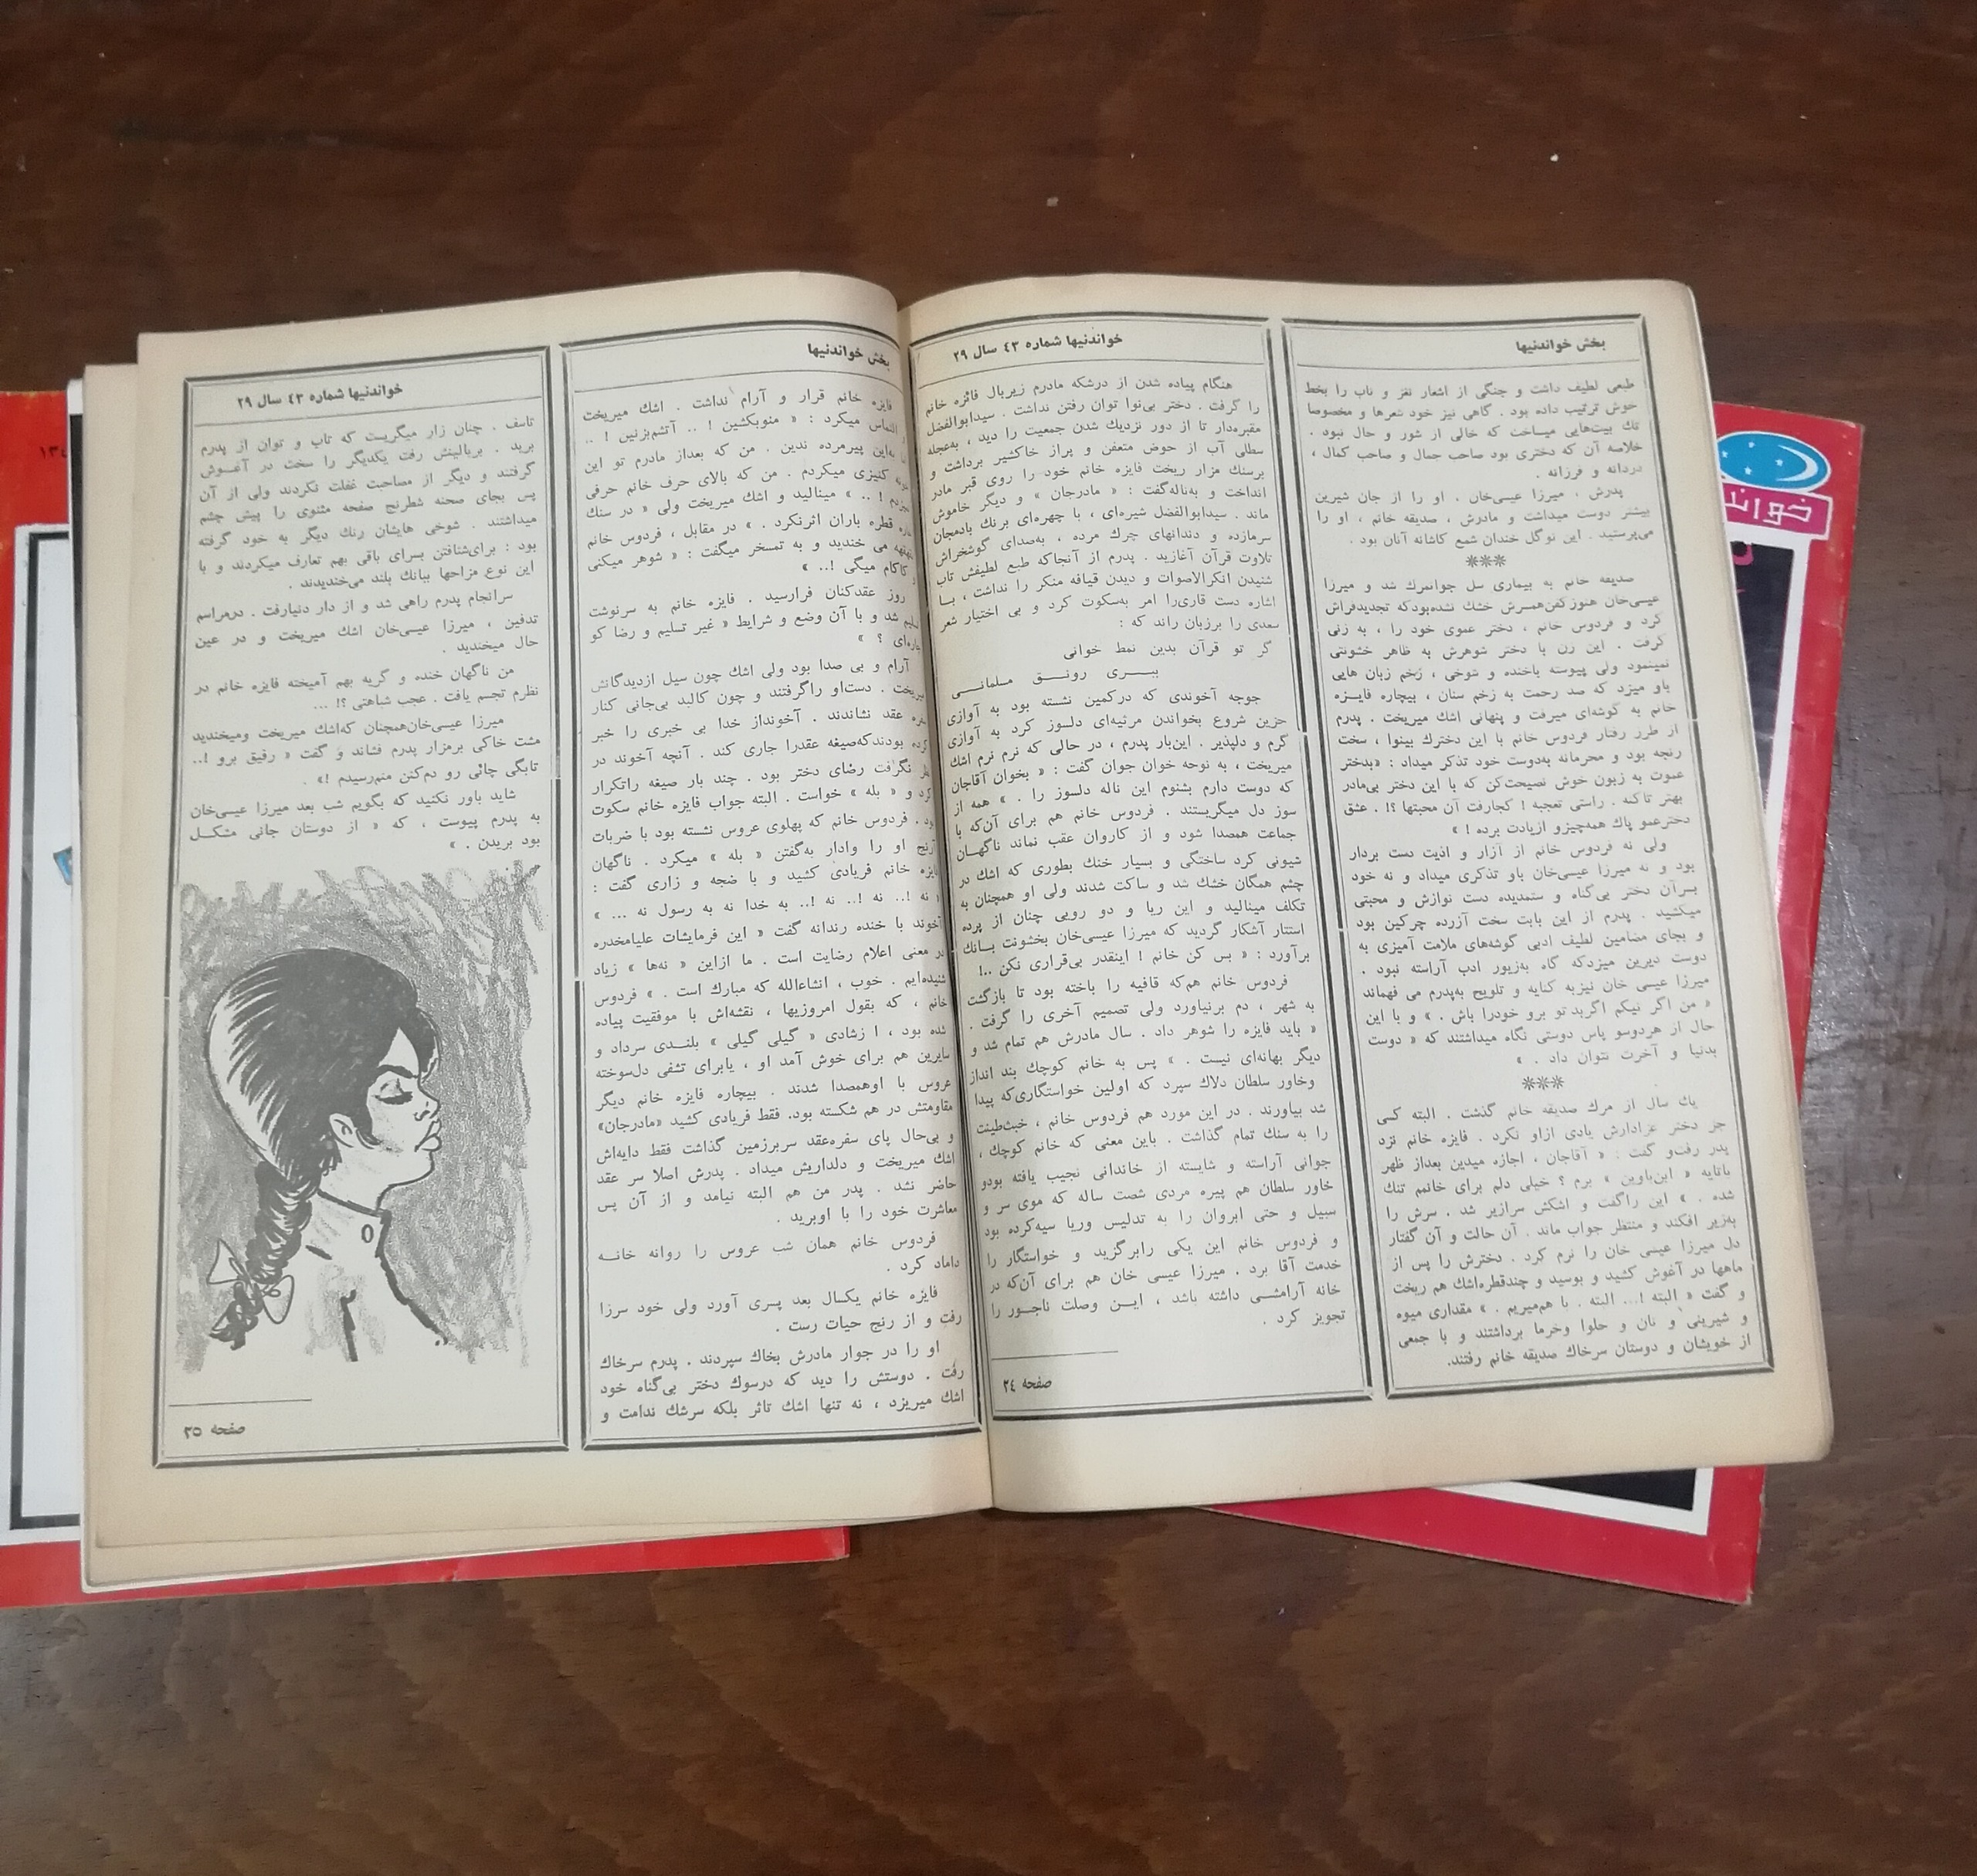 بخش خواندنیها
طبعی لطیف داشت و جنگی از اشعار نغز و ناب را بخط
خوش ترتیب داده بود . گاهی نیز خود شعرها و مخصوصا
تك بیت‌هایی میساخت که خالی از شور و حال نبود .
خلاصه آن که دختری بود صاحب جمال و صاحب کمال ،
دردانه و فرزانه .
پدرش ، میرزا عیسی‌خان ، او را از جان شیرین
بیشتر دوست میداشت و مادرش ، صدیقه خانم ، او را
می‌پرستید . این نوگل خندان شمع کاشانه آنان بود .
***
صدیقه خانم به بیماری سل جوانمرك شد و میرزا
عیسی‌خان هنوز کفن‌همسرش خشك نشده‌بود که تجدیدفراش
کرد و فردوس خانم ، دختر عموی خود را ، به زنی
گرفت . این زن با دختر شوهرش به ظاهر خشونتی
نمینمود ولی پیوسته باخنده و شوخی ، زخم زبان هایی
باو میزد که صد رحمت به زخم سنان ، بیچاره فایـزه
خانم به گوشه‌ای میرفت و پنهانی اشك میریخت . پدرم
از طرز رفتار فردوس خانم با این دخترك بینوا ، سخت
رنجه بود و محرمانه به‌دوست خود تذکر میداد : «بدختر
عموت به زبون خوش نصیحت‌کن که با این دختر بی‌مادر
بهتر تاکنه . راستی تعجبه ! کجارفت آن محبتها ؟! . عشق
دخترعمو پاك همه‌چیزو ازیادت برده ! »
ولی نه فردوس خانم از آزار و اذیت دست بردار
بود و نه میرزا عیسی‌خان باو تذکری میداد و نه خود
بـرآن دختر بی‌گناه و ستمدیده دست نوازش و محبتی
میکشید . پدرم از این بابت سخت آزرده چرکین بود
و بجای مضامین لطیف ادبی گوشه‌های ملامت آمیزی به
دوست دیرین میزدکه گاه به‌زیور ادب آراسته نبود .
میرزا عیسی خان نیزبه کنایه و تلویح به‌پدرم می فهماند
« من اگر نیکم اگربد تو برو خودرا باش . » و با این
حال از هردوسو پاس دوستی نگاه میداشتند که « دوست
بدنیا و آخرت نتوان داد . »
***
یك سال از مرك صدیقه خانم گذشت . البته کـی
جز دختر عزادارش یادی ازاو نکرد . فایزه خانم نزد
پدر رفت‌و گفت : « آقاجان ، اجازه میدین بعداز ظهر
باتایه « این‌باوین » برم ؟ خیلی دلم برای خانمم تنك
شده . » این راگفت و اشکش سرازیر شد . سرش را
به‌زیر افکند و منتظر جواب ماند . آن حالت و آن گفتار
دل میرزا عیسی خان را نرم کرد . دخترش را پس از
ماهها در آغوش کشید و بوسید و چندقطره‌اشك هم ریخت
و گفت « البته !... البته . با هم‌میریم . » مقداری میوه
و شیرینی و نان و حلوا وخرما برداشتند و با جمعی
از خویشان و دوستان سرخاك صدیقه خانم رفتند.
خواندنیها شماره ٤٣ سال ٢٩
هنگام پیاده شدن از درشکه مادرم زیربال فائزه خانم
را گرفت . دختر بی‌نوا توان رفتن نداشت . سیدابوالفضل
مقبره‌دار تا از دور نزدیك شدن جمعیت را دید ، به‌عجله
سطلی آب از حوض متعفن و پراز خاکشیر برداشت و
برسنك مزار ریخت فایزه خانم خود را روی قبر مادر
انداخت و به‌ناله‌گفت : « مادرجان » و دیگر خاموش
ماند . سیدابوالفضل شیره‌ای ، با چهره‌ای برنك بادمجان
سرمازده و دندانهای چرك مرده ، به‌صدای گوشخراش
تلاوت قرآن آغازید . پدرم از آنجاکه طبع لطیفش تاب
شنیدن انکرالاصوات و دیدن قیافه منکر را نداشت ، بـا
اشاره دست قاری‌را امر به‌سکوت کرد و بی اختیار شعر
سعدی را برزبان راند که :
گر تو قرآن بدین نمط خوانی
ببـــری رونـــق مـلمانـــی
جوجه آخوندی که درکمین نشسته بود به آوازی
حزین شروع بخواندن مرثیه‌ای دلسوز کرد به آوازی
گرم و دلپذیر . این‌بار پدرم ، در حالی که نرم نرم اشك
میریخت ، به نوحه خوان جوان گفت : « بخوان آقاجان
که دوست دارم بشنوم این ناله دلسوز را . » همه از
سوز دل میگریستند . فردوس خانم هم برای آن‌که با
جماعت همصدا شود و از کاروان عقب نماند ناگهـان
شیونی کرد ساختگی و بسیار خنك بطوری که اشك در
چشم همگان خشك شد و ساکت شدند ولی او همچنان به
تکلف مینالید و این ریا و دو رویی چنان از پرده
استتار آشکار گردید که میرزا عیسی‌خان بخشونت بـانك
برآورد : « بس کن خانم ! اینقدر بی‌قراری نکن ..!
فردوس خانم هم‌که قافیه را باخته بود تا بازگشت
به شهر ، دم برنیاورد ولی تصمیم آخری را گرفت .
« باید فایزه را شوهر داد . سال مادرش هم تمام شد و
دیگر بهانه‌ای نیست . » پس به خانم کوچك بند انداز
وخاور سلطان دلاك سپرد که اولین خواستگاری‌که پیدا
شد بیاورند . در این مورد هم فردوس خانم ، خبث‌طینت
را به سنك تمام گذاشت . باین معنی که خانم کوچك ،
جوانی آراسته و شایسته از خاندانی نجیب یافته بودو
خاور سلطان هم پیره مردی شصت ساله که موی سر و
سبیل و حتی ابروان را به تدلیس وریا سیه‌کرده بود
و فردوس خانم این یکی رابرگزید و خواستگار را
خدمت آقا برد . میرزا عیسی خان هم برای آن‌که در
خانه آرامشـی داشته باشد ، ایـن وصلت ناجـور را
تجویز کرد .
صفحه ٣٤
بخش خواندنیها
فایزه خانم قرار و آرام نداشت . اشك میریخت
التماس میکرد : « منوبکشین ! .. آتشم‌بزنین ! ..
به‌این پیرمرده ندین . من که بعداز مادرم تو این
کنیزی میکردم . من که بالای حرف خانم حرفی
! .. » مینالید و اشك میریخت ولی « در سنك
قطره باران اثرنکرد . » در مقابل ، فردوس خانم
می خندید و به تمسخر میگفت : « شوهر میکنی
کاکام میگی !.. »
روز عقدکنان فرارسید . فایزه خانم به سرنوشت
شد و با آن وضع و شرایط « غیر تسلیم و رضا کو
چاره‌ای ؟ »
آرام و بی صدا بود ولی اشك چون سیل ازدیدگانش
میریخت . دست‌او راگرفتند و چون کالبد بی‌جانی کنار
عقد نشاندند . آخونداز خدا بی خبری را خبر
بودندکه‌صیغه عقدرا جاری کند . آنچه آخوند در
نگرفت رضای دختر بود . چند بار صیغه راتکرار
کرد و « بله » خواست . البته جواب فایزه خانم سکوت
بود . فردوس خانم که پهلوی عروس نشسته بود با ضربات
آرنج او را وادار به‌گفتن « بله » میکرد . ناگهان
فایزه خانم فریادی کشید و با ضجه و زاری گفت :
« نه !.. نه !.. نه !.. به خدا نه به رسول نه ... »
آخوند با خنده رندانه گفت « این فرمایشات علیامخدره
در معنی اعلام رضایت است . ما ازاین « نه‌ها » زیاد
شنیده‌ایم . خوب ، انشاءالله که مبارك است . » فردوس
خانم ، که بقول امروزیها ، نقشه‌اش با موفقیت پیاده
شده بود ، ا زشادی « گیلی گیلی » بلنـدی سرداد و
سایرین هم برای خوش آمد او ، یابرای تشفی دل‌سوخته
عروس با اوهمصدا شدند . بیچاره فایزه خانم دیگر
مقاومتش در هم شکسته بود. فقط فریادی کشید «مادرجان»
و بی‌حال پای سفره‌عقد سربرزمین گذاشت فقط دایه‌اش
اشك میریخت و دلداریش میداد . پدرش اصلا سر عقد
حاضر نشد . پدر من هم البته نیامد و از آن پس
معاشرت خود را با اوبرید .
فردوس خانم همان شب عروس را روانه خانـه
داماد کرد .
فایزه خانم یکسال بعد پسری آورد ولی خود سرزا
رفت و از رنج حیات رست .
او را در جوار مادرش بخاك سپردند . پدرم سرخاك
رفت . دوستش را دید که درسوك دختر بی‌گناه خود
اشك میریزد ، نه تنها اشك تاثر بلکه سرشك ندامت و
خواندنیها شماره ٤٣ سال ٢٩
تاسف . چنان زار میگریست که تاب و توان از پدرم
برید . بربالینش رفت یکدیگر را سخت در آغـوش
گرفتند و دیگر از مصاحبت غفلت نکردند ولی از آن
پس بجای صحنه شطرنج صفحه مثنوی را پیش چشم
میداشتند . شوخی هایشان رنك دیگر به خود گرفته
بود : برای‌شتافتن بسرای باقی بهم تعارف میکردند و با
این نوع مزاحها ببانك بلند می‌خندیدند .
سرانجام پدرم راهی شد و از دار دنیارفت . درمراسم
تدفین ، میرزا عیسی‌خان اشك میریخت و در عین
حال میخندید .
من ناگهان خنده و گریه بهم آمیخته فایزه خانم در
نظرم تجسم یافت . عجب شباهتی ؟! ...
میرزا عیسی‌خان‌همچنان که‌اشك میریخت ومیخندید
مشت خاکی برمزار پدرم فشاند و گفت « رفیق برو !..
تابگی چائی رو دم‌کنن منم‌رسیدم !» .
شاید باور نکنید که بگویم شب بعد میرزا عیسی‌خان
به پدرم پیوست ، که « از دوستان جانی مشکـل
بود بریدن . »
صفحه ٣٥